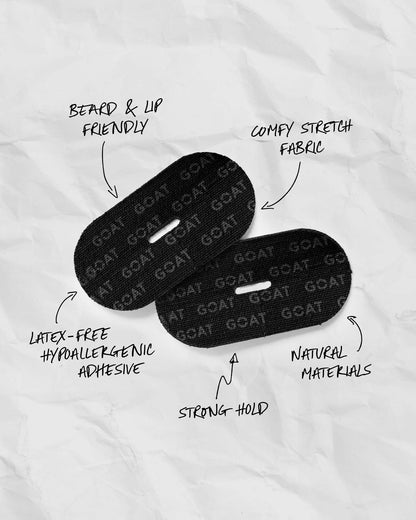 BEARD & LIP
FRIENDLY
COMFY STRETCH
FABRIC
GOAT GOAT
GOAT GOAT GOAT
GOAT GOAT GOAT
GOAT GOAT
GOAT GOAT GOAT
GOAT GOAT GOAT GOAT
GOAT GOAT GOAT GOAT
LATEX-FREE
HYPOALLERGENIC
ADHESIVE
NATURAL
MATERIALS
STRONG HOLD